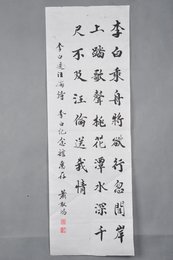 李白乘舟將欲行忽聞岸
上踏歌聲桃花潭水深千
尺不及汪倫送我情
李白送汪倫詩 李白紀念館惠存